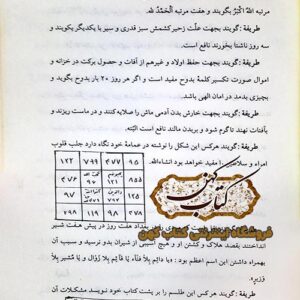 مرتبه اللهُ اَکْبَر بگویند و هفت مرتبه اَلْحَمْدُ لله.
طریقه : گویند بجهت علّت زحیر کشمش سبز قدری و سیر با یکدیگر بکوبند و
سه روز ناشتا بخورند نافع است.
طریقه : گویند بجهت حفظ اولاد و غیرهم از آفات و حصول برکت در خزانه و
اموال صورت تکسیر کلمهٔ بدوح مفید است و اگر هر روز ۲۰ بار بدوح بگوید و
بچیزی بدمد در امان الهی باشد.
طریقه : گویند بجهت خارش بدن آدمی ماش را صلایه کنند و در ماست ریزند و
بآفتاب نهند تا گرم شود و بر بدن مالند نافع است البته.
طریقه : گویند هرکس این شکل را نوشته در عمامهٔ خود نگاه دارد جلب قلوب
امراء و سلاطین را مفید خواهد بود انشاءالله.
۱۲۲ ۷۹۹ ۴۷۷ ۹۵
۸۵۵
۹۷
۲۷۸ ۱۱۹ ۹۸
کتاب کهن
بغداد هفت روز در پیش هفت شیر
انداختند بقصد هلاک و کشتن او و هیچ آسیبی از شیران بدو نرسید و سبب آن
بهمراه داشتن این اسم اعظم بود : «یا دائِم بِلا فَناء یا قائِم بِلا زَوال وَ یا مُشیر بِلا
وَزیر».
طریقه : گویند هر کس این طلسم را بر پشت کتاب خود نویسد مشکلات آن